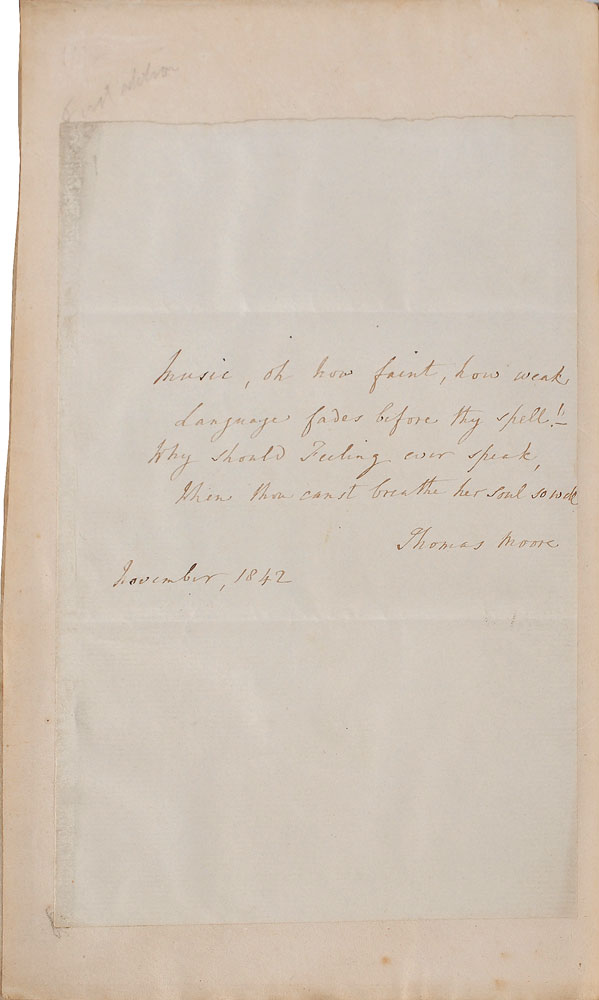 First edition
Music, oh how faint, how weak
Language fades before thy spell!—
Why should Feeling ever speak,
When thou canst breathe her soul so well
Thomas Moore
November, 1842